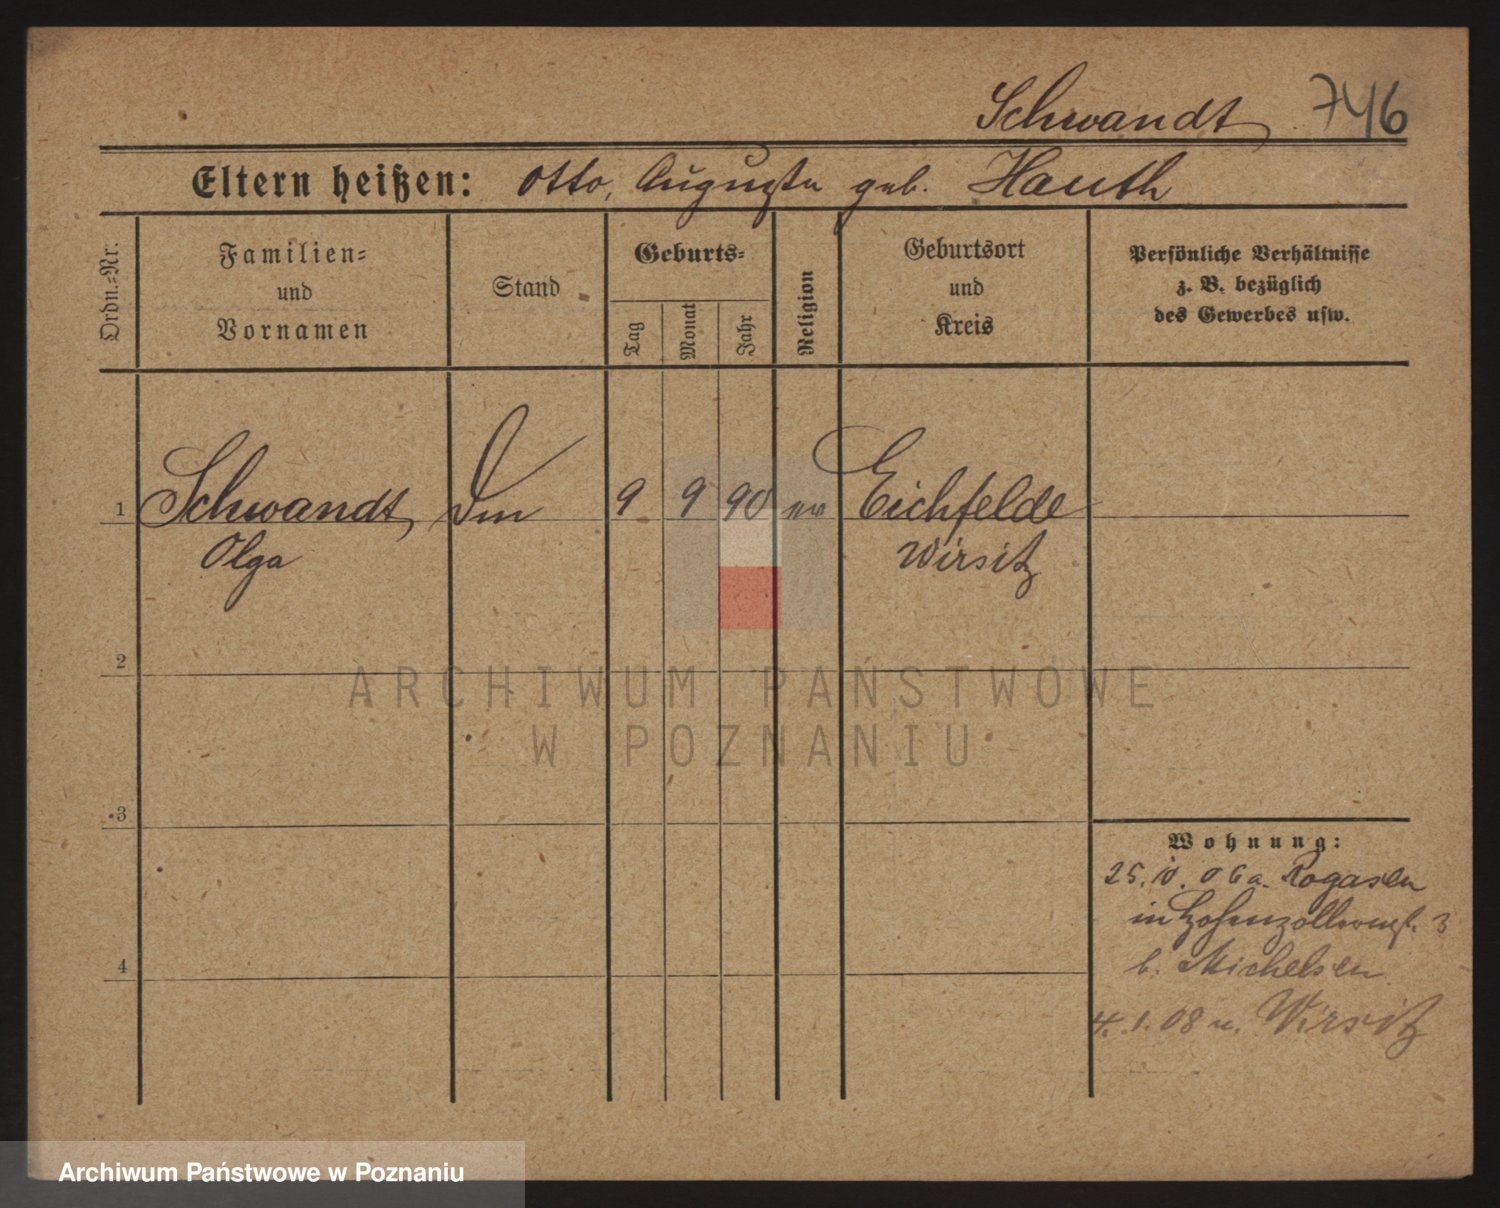 Schwandt 746
Eltern heißen: Otto, Auguste geb. Hauth
Ordn.-Nr.
Familien-
und
Vornamen
Stand
Geburts-
Tag
Monat
Jahr
Religion
Geburtsort
und
Kreis
Persönliche Verhältnisse
z. B. bezüglich
des Gewerbes usw.
1 Schwandt, 9 9 90 ev Eichfelde
Olga Wirsitz
2
ARCHIWUM PAŃSTWOWE
W POZNANIU
3
Wohnung:
25. 06 a. Rogasen
in Hohenzollernst. 3
4
b. Michelsen
4. 1. 08 n. Wirsitz
Archiwum Państwowe w Poznaniu